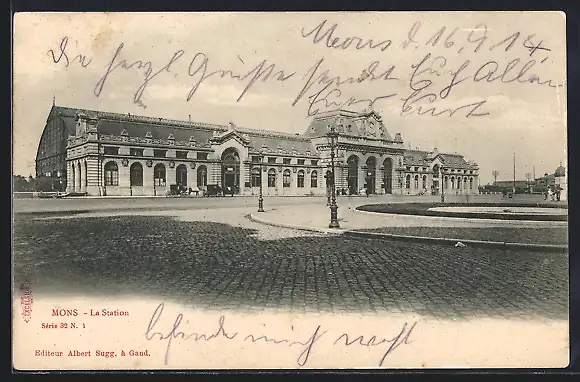 Mons, d. 16.9.14
Die herzl. Grüße sendet Euch Allen
Euer Curt
befinde mich wohl
MONS - La Station
Série 32 N. 1
Editeur Albert Sugg, à Gand.